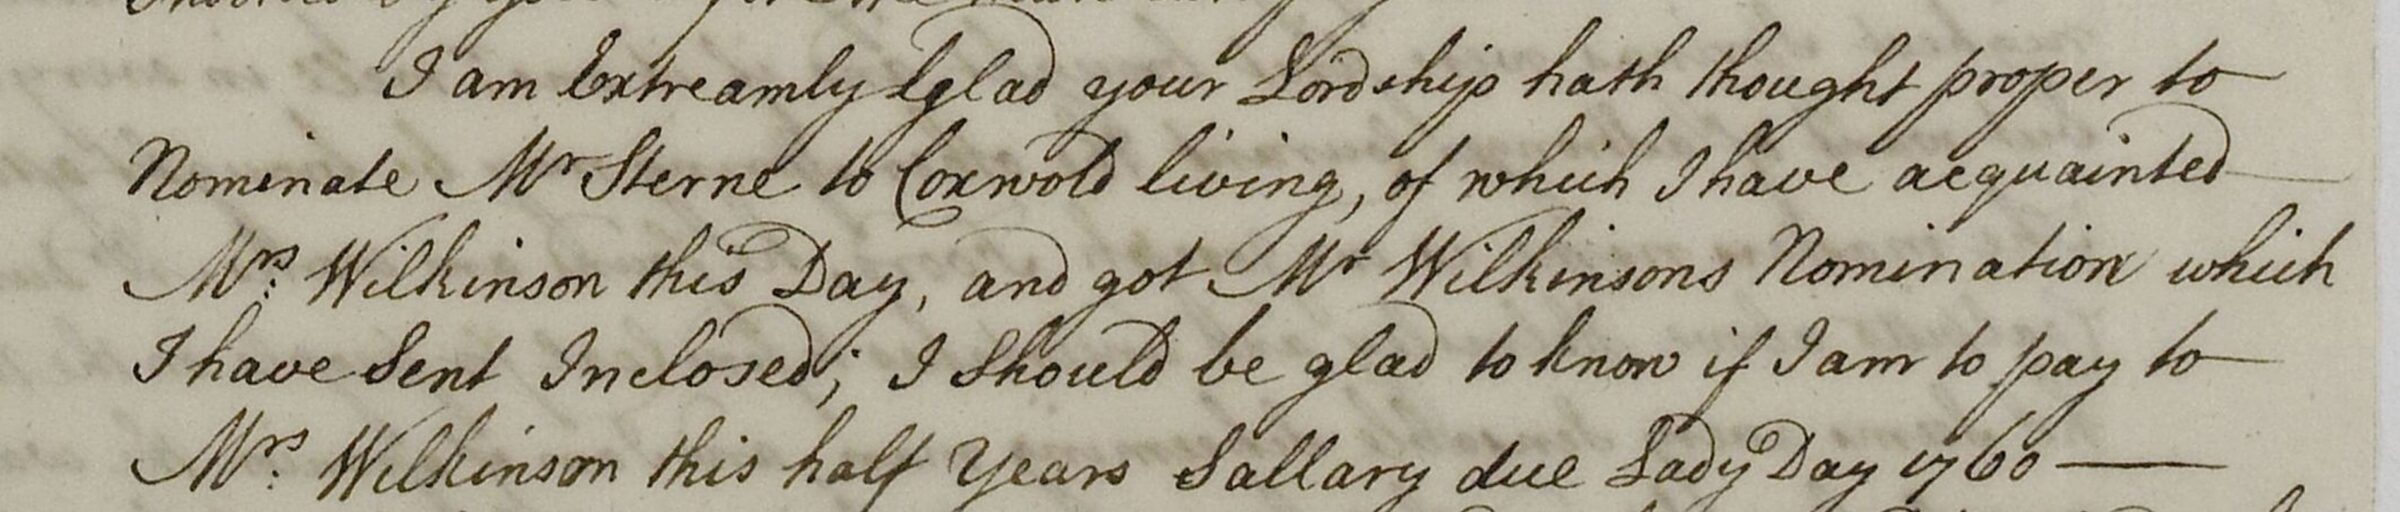 I am Extreamly glad your Lordship hath thought proper to
Nominate Mr Sterne to Coxwold living, of which I have acquainted
Mrs. Wilkinson this Day, and got Mr Wilkinsons Nomination which
I have Sent Inclosed; I Should be glad to know if I am to pay to
Mrs. Wilkinson this half Years Sallary due Lady Day 1760 —